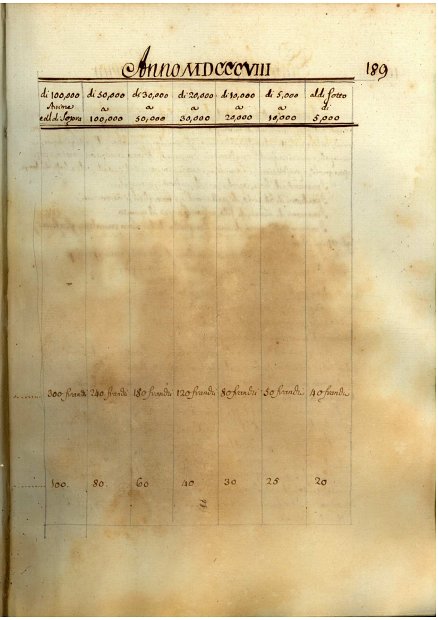 Anno MDCCCVIII 189
di 100,000 di 50,000 di 30,000 di 20,000 di 10,000 di 5,000 al di sotto
Anime a a a a a di
e al di Sopra 100,000 50,000 30,000 20,000 10,000 5,000
300 franchi 240 franchi 180 franchi 120 franchi 80 franchi 50 franchi 40 franchi
100. 80. 60 40 30 25 20